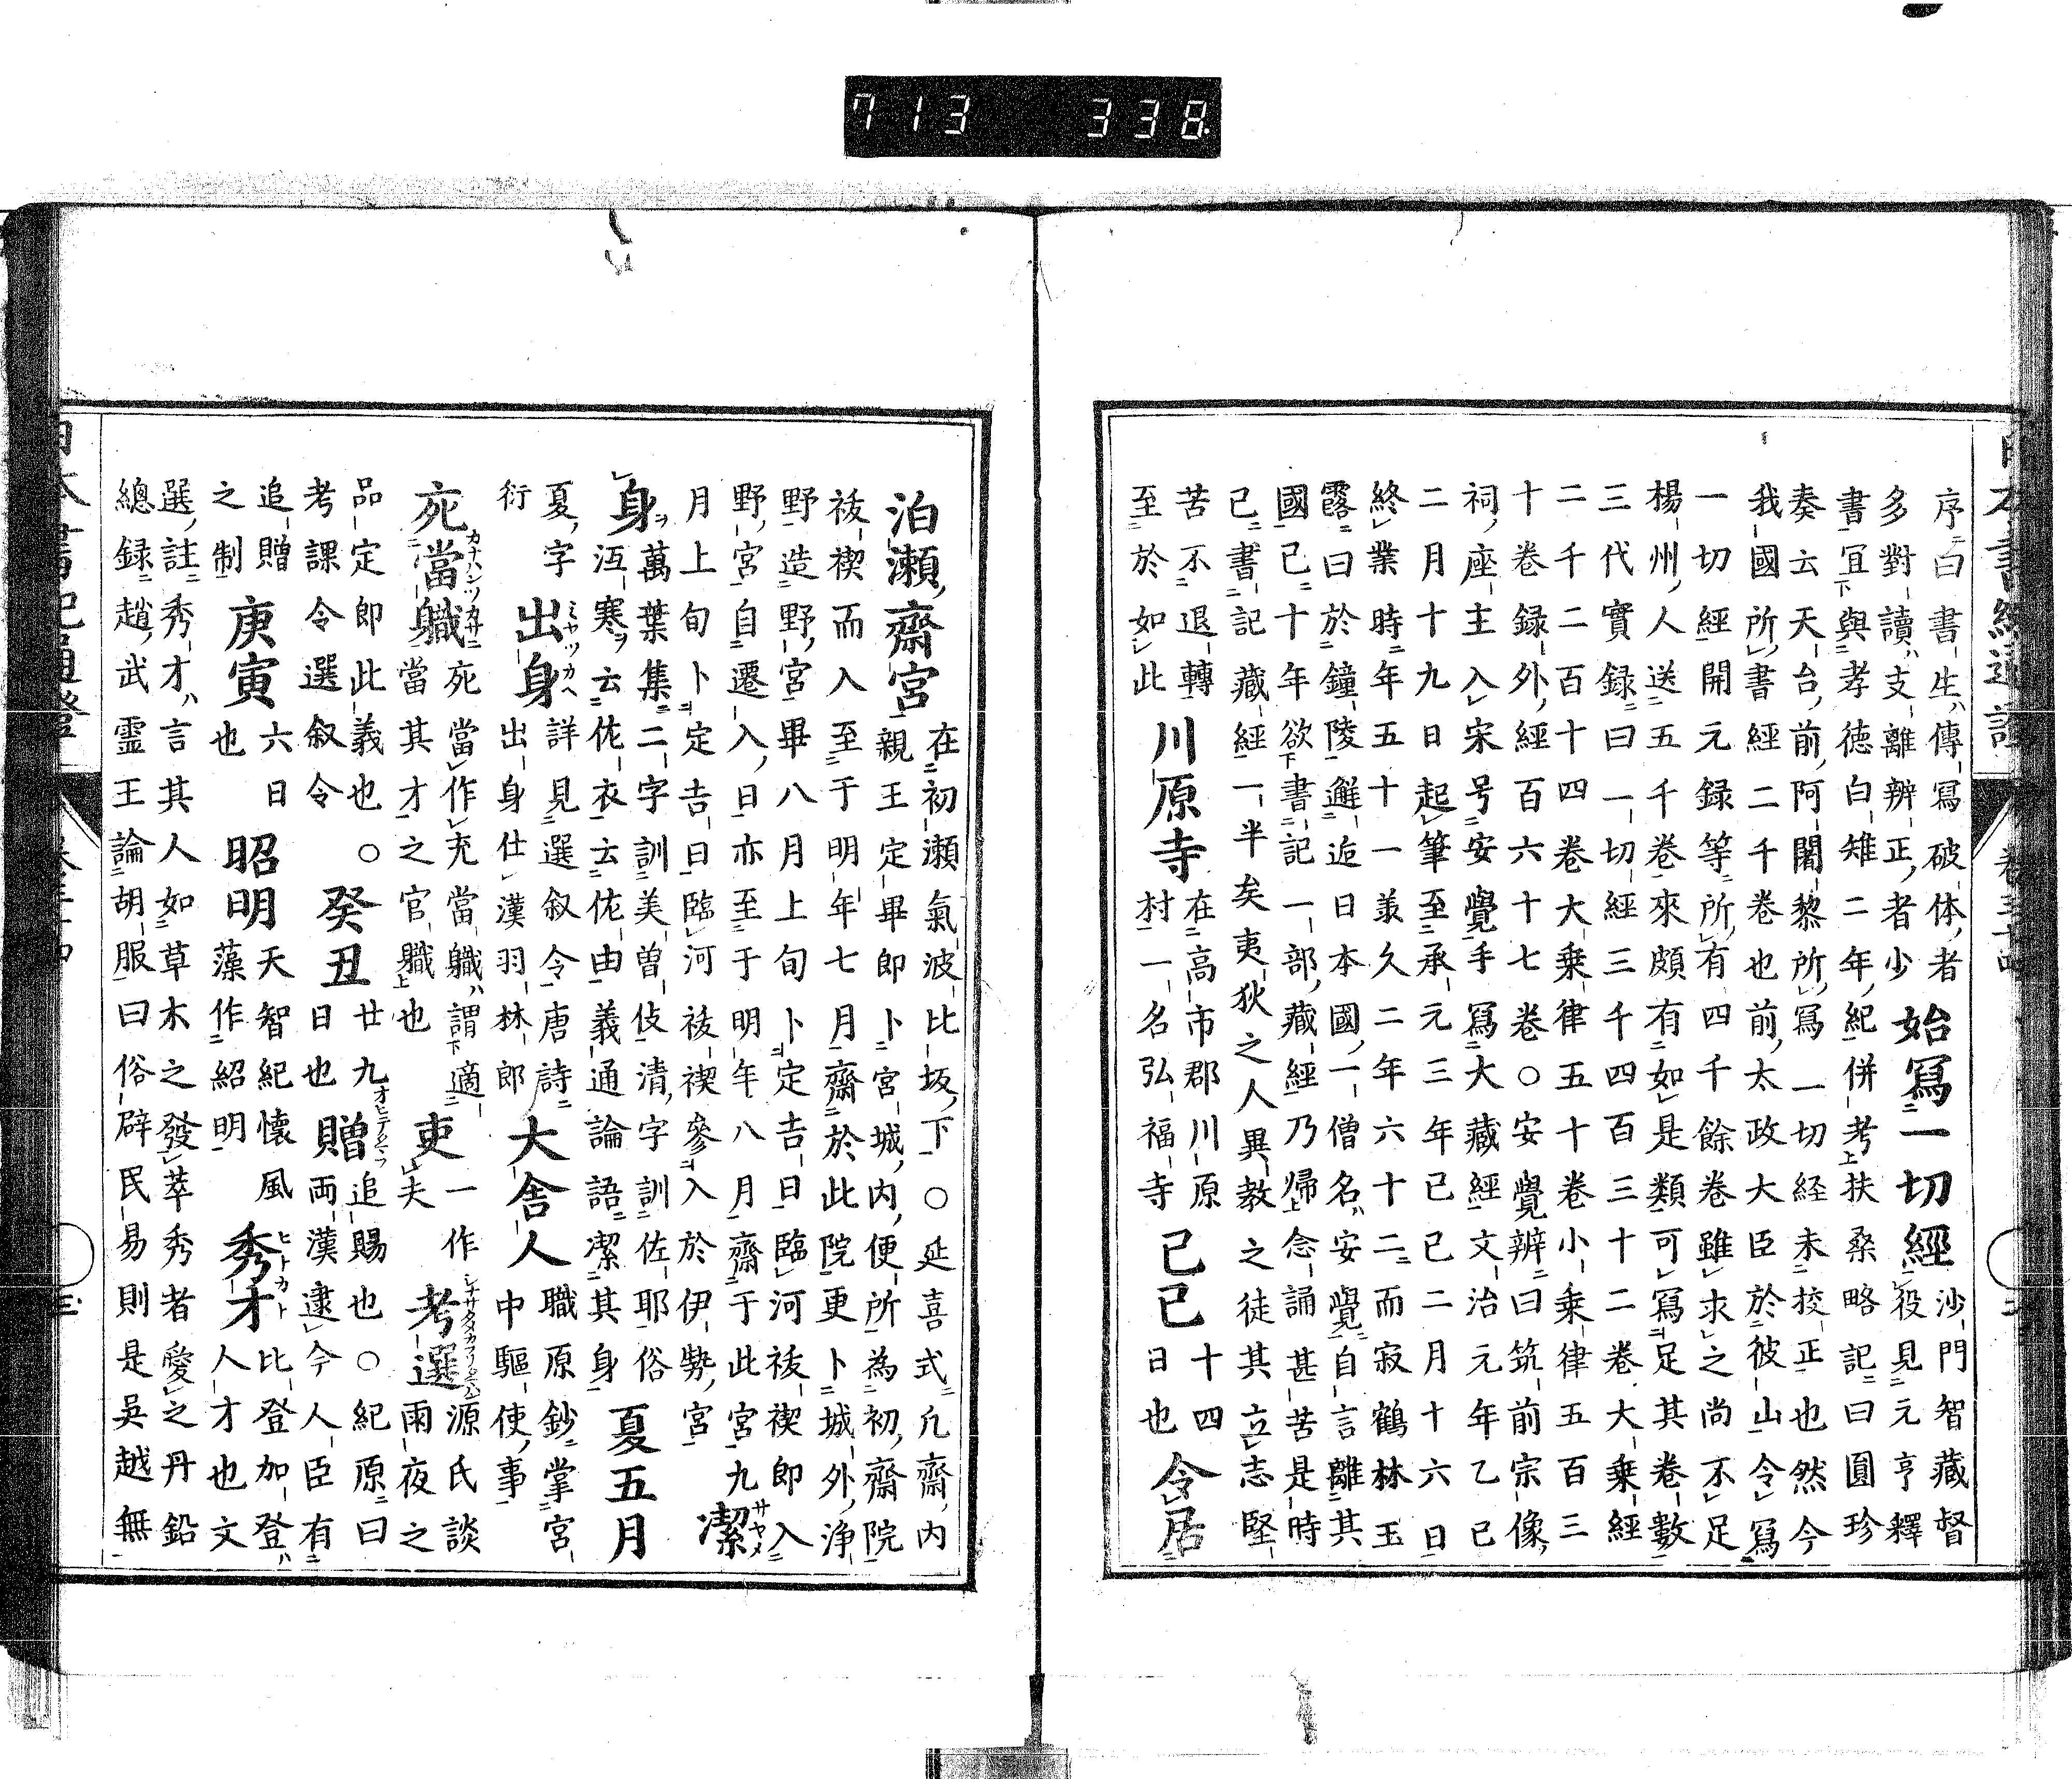 713 338
序曰書生傳寫破体者
多對讀支離辨正者少
始寫一切經
沙門智藏督
役見元亨釋
書宜與孝徳白雉二年紀併考扶桑略記曰圓珍
奏云天台前阿闍黎所寫一切経未挍正也然今
我國所書經二千卷也前太政大臣於彼山令寫
一切經開元録等所有四千餘卷雖求之尚不足
楊州人送五千卷來頗有如是類可寫足其卷數
三代實録曰一切經三千四百三十二卷大乗經
二千二百十四卷大乗律五十卷小乗律五百三
十卷録外經百六十七卷○安覺辨曰筑前宗像
祠座主入宋号安覺手寫大藏經文治元年乙巳
二月十九日起筆至承元三年已巳二月十六日
終業時年五十一羕久二年六十二而寂鶴林玉
露曰於鐘陵邂逅日本國一僧名安覺自言離其
國已十年欲書記一部藏經乃帰念誦甚苦是時
已書記藏經一半矣夷狄之人異教之徒其立志堅
苦不退轉
至於如此
川原寺
在高市郡川原
村一名弘福寺
己巳
十四
日也
令居
泊瀬齋宮
在初瀬氣波比坂下○延喜式凢齋内
親王定畢即卜宮城内便所為初齋院
祓禊而入至于明年七月齋於此院更卜城外浄
野造野宮畢八月上旬卜定吉日臨河祓禊即入
野宮自遷入日亦至于明年八月齋于此宮九
月上旬卜定吉日臨河祓禊參入於伊勢宮
潔
サヤメ
身
ヲ
萬葉集二字訓美曽伎清字訓佐耶俗
沍寒ヲ云佗衣云佗由義通論語潔其身
夏五月
夏字
衍
出身
ミヤツカヘ
詳見選叙令唐詩
出身仕漢羽林郎
大舎人
職原鈔掌宮
中驅使事
死當職
カナハンツカサニ
死當作充當職ハ謂適
當其才之官職也
吏
一作
夫
考選
源氏談
雨夜之
品定即此義也○
考課令選叙令
癸丑
廿九
日也
贈
オヒテタマフ
追賜也○紀原曰
両漢逮今人臣有
追贈
之制
庚寅
六日
也
昭明
天智紀懐風
藻作紹明
秀才
ヒトカト
比登加登ハ
人才也文
選註秀才ハ言其人如草木之發萃秀者愛之丹鉛
總録趙武霊王論胡服曰俗辟民易則是吳越無